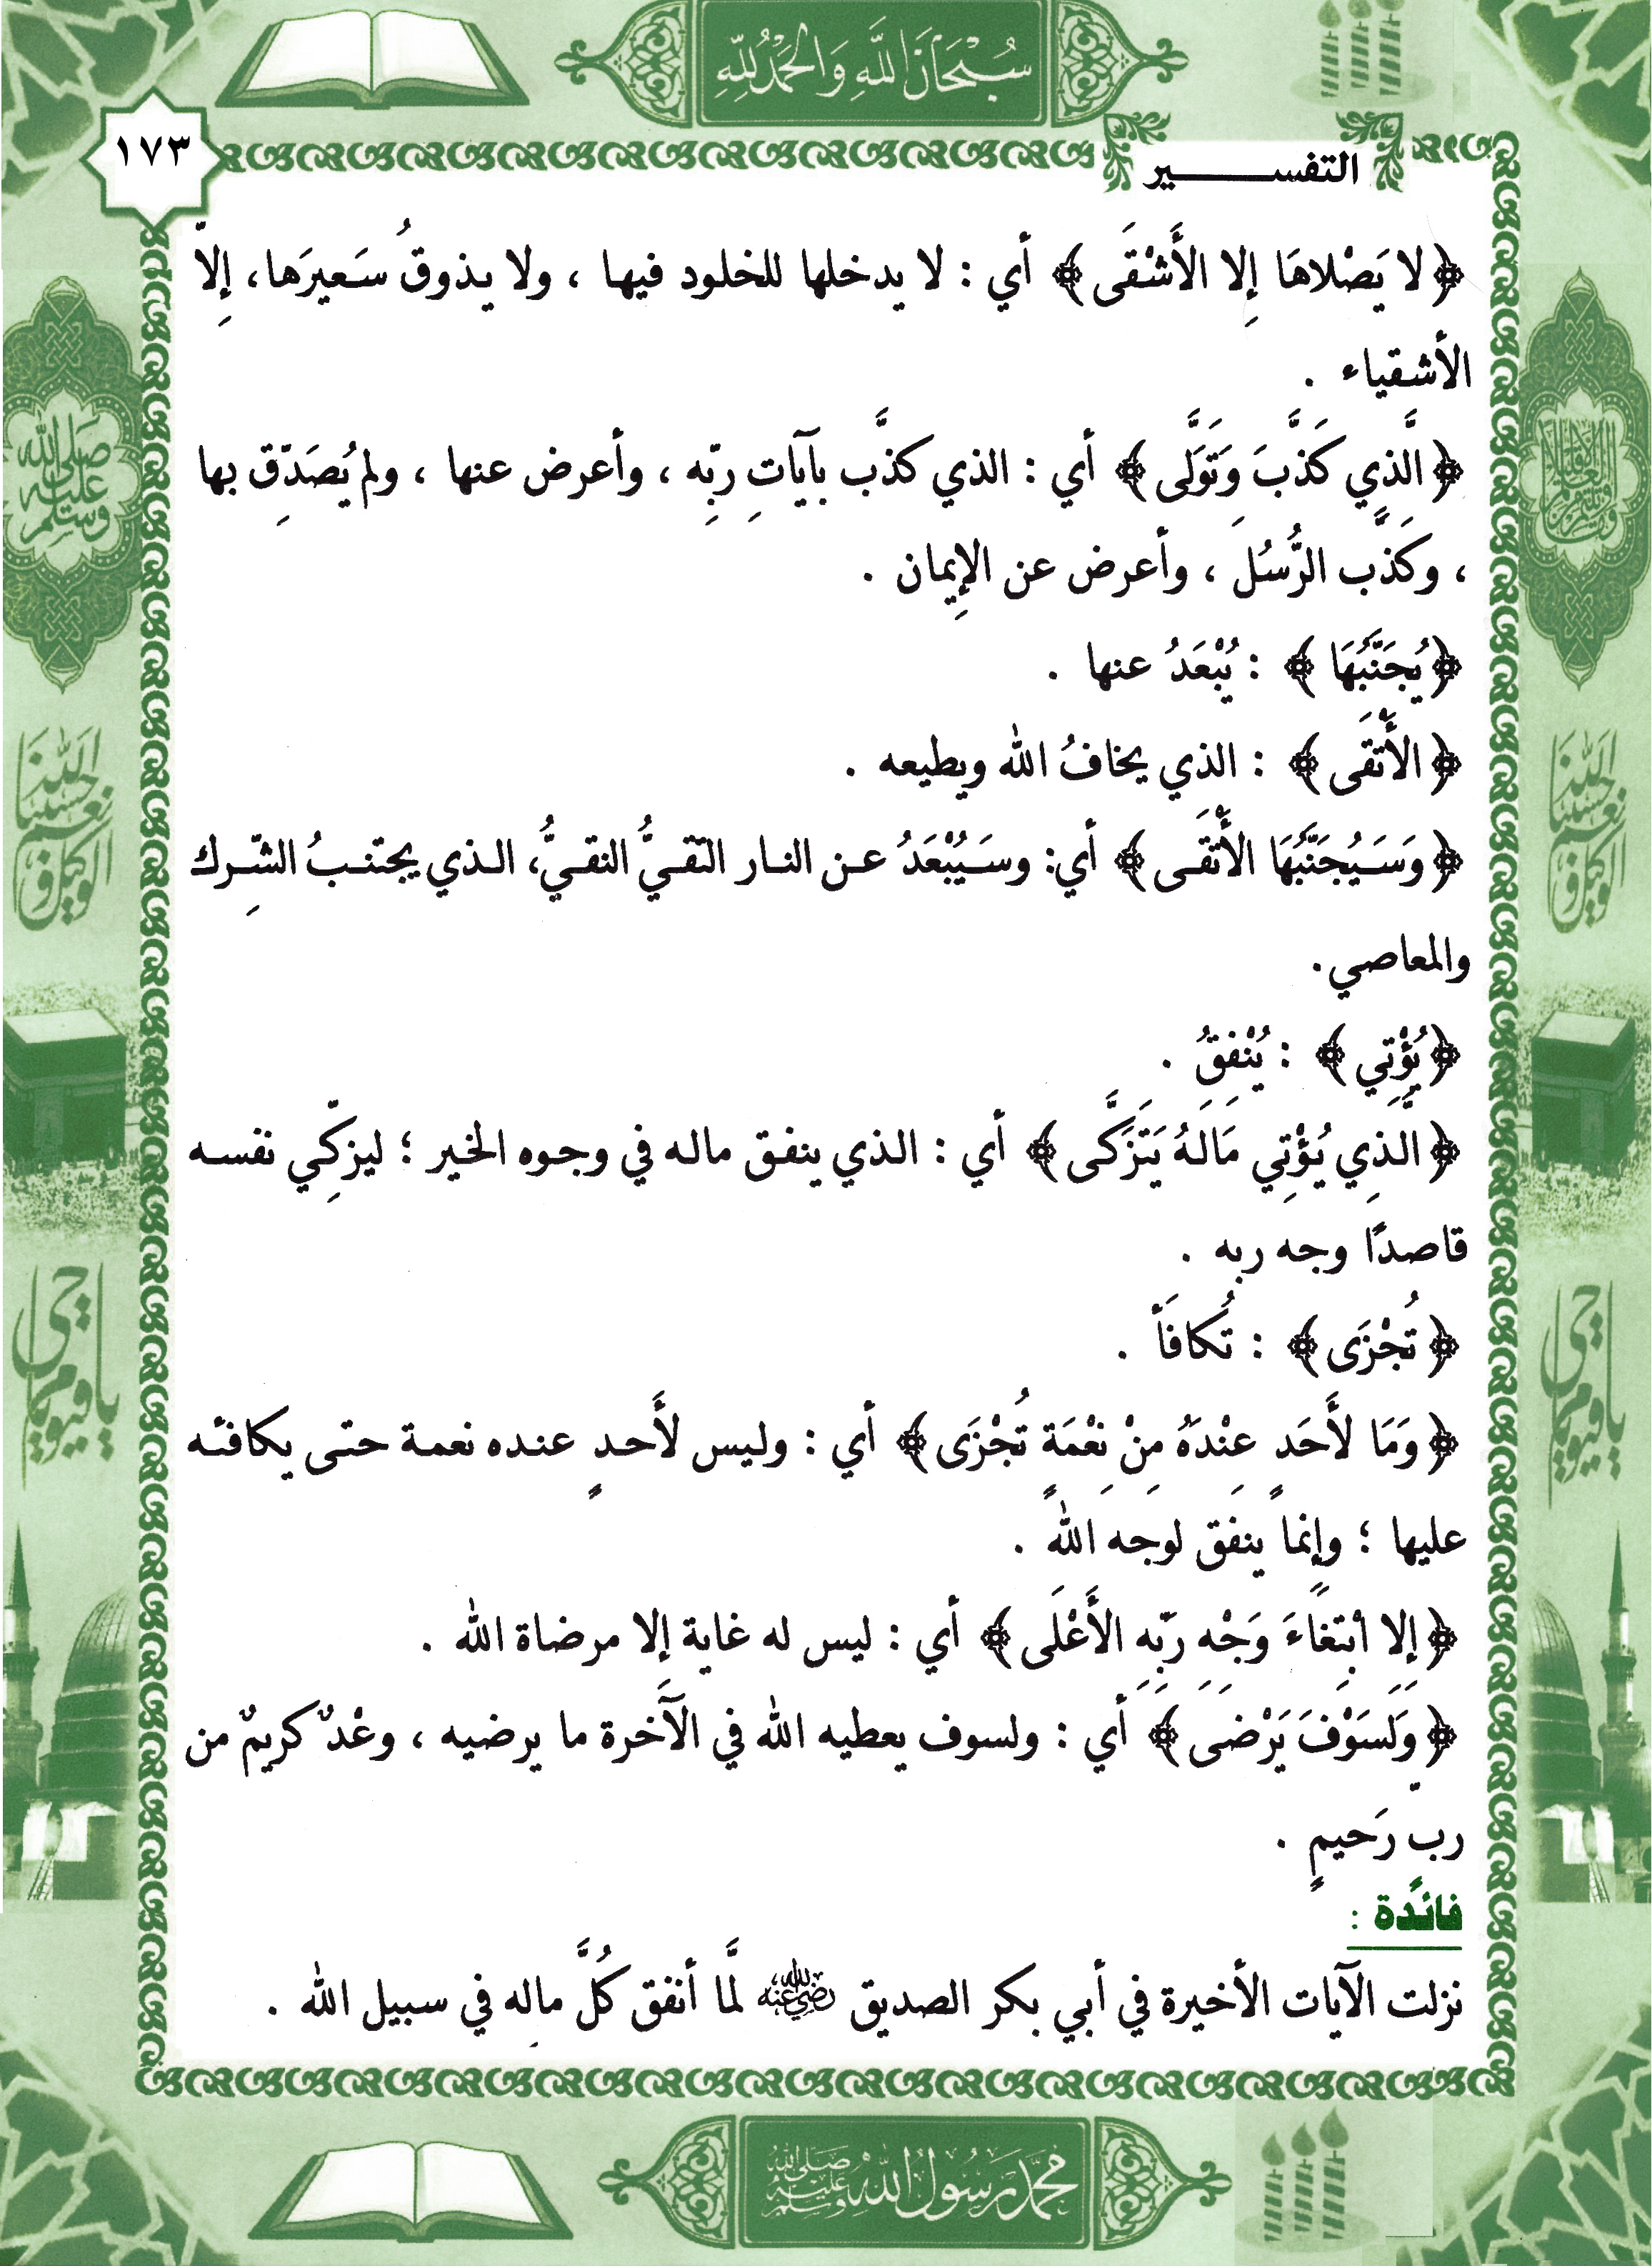 سُبْحَانَ اللَّهِ وَالْحَمْدُ لِلَّهِ
١٧٣
التفســــــير
﴿لا يَصْلاهَا إِلا الأَشْقَى﴾ أي : لا يدخلها للخلود فيها ، ولا يذوقُ سَعيرَها، إِلاّ
الأشقياء .
﴿الَّذِي كَذَّبَ وَتَوَلَّى﴾ أي : الذي كذَّب بآيَاتِ ربِّه ، وأعرض عنها ، ولم يُصَدِّق بها
، وكَذَّب الرُّسُلَ ، وأعرض عن الإِيمان .
﴿يُجَنَّبُهَا ﴾ : يُبْعَدُ عنها .
﴿الأَتْقَى﴾ : الذي يخافُ الله ويطيعه .
﴿وَسَيُجَنَّبُهَا الأَتْقَى﴾ أي: وسَيُبْعَدُ عن النار التّقيُّ النقيُّ، الذي يجتنبُ الشِّرك
والمعاصي.
﴿يُؤْتِي﴾ : يُنْفِقُ .
﴿الَّذِي يُؤْتِي مَالَهُ يَتَزَكَّى﴾ أي : الذي ينفق ماله في وجوه الخير ؛ ليزكِّي نفسه
قاصدًا وجه ربه .
﴿تُجْزَى﴾ : تُكَافَأ .
﴿وَمَا لأَحَدٍ عِنْدَهُ مِنْ نِعْمَةٍ تُجْزَى﴾ أي : وليس لأَحدٍ عنده نعمة حتى يكافئه
عليها ؛ وإنما ينفق لوجه الله .
﴿إِلا ابْتِغَاءَ وَجْهِ رَبِّهِ الأَعْلَى﴾ أي : ليس له غاية إلا مرضاة الله .
﴿وَلَسَوْفَ يَرْضَى﴾ أي : ولسوف يعطيه الله في الآخرة ما يرضيه ، وعْدٌ كريمٌ من
ربٍّ رَحيمٍ .
فائدة :
نزلت الآيات الأخيرة في أبي بكر الصديق رضي الله عنه لَمَّا أنفق كُلَّ مالِه في سبيل الله .
صلى الله عليه وسلم
الله حسبنا نعم الوكيل
يا حي يا قيوم
محمد رسول الله صلى الله عليه وسلم